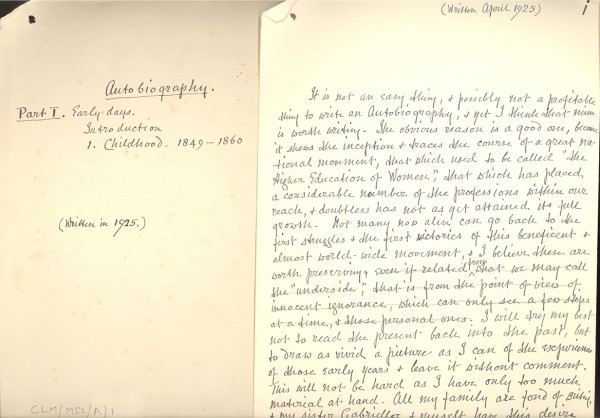 Autobiography.
Part I. Early days.
Introduction
1. Childhood. 1849–1860
(Written in 1925.)
CLM/MSS/A/1
(Written April 1925)
i
It is not an easy thing, & possibly not a profitable
thing to write an Autobiography, & yet I think that mine
is worth writing. The obvious reason is a good one, because
it shows the inception & traces the course of a great na-
tional movement, that which used to be called "the
Higher Education of Women", that which has placed
a considerable number of the professions within our
reach, & doubtless has not as yet attained its full
growth. Not many now alive can go back to the
first struggles & the first victories of this beneficent &
almost world-wide movement, & I believe these are
worth preserving, even if related from what we may call
the "underside", that is from the point of view of
innocent ignorance, which can only see a few steps
at a time, & those personal ones. I will try my best
not to read the present back into the past, but
to draw as vivid a picture as I can of the experience
of those early years & leave it without comment.
This will not be hard as I have only too much
material at hand. All my family are fond of
& my sister Gabrielle & myself have this desire